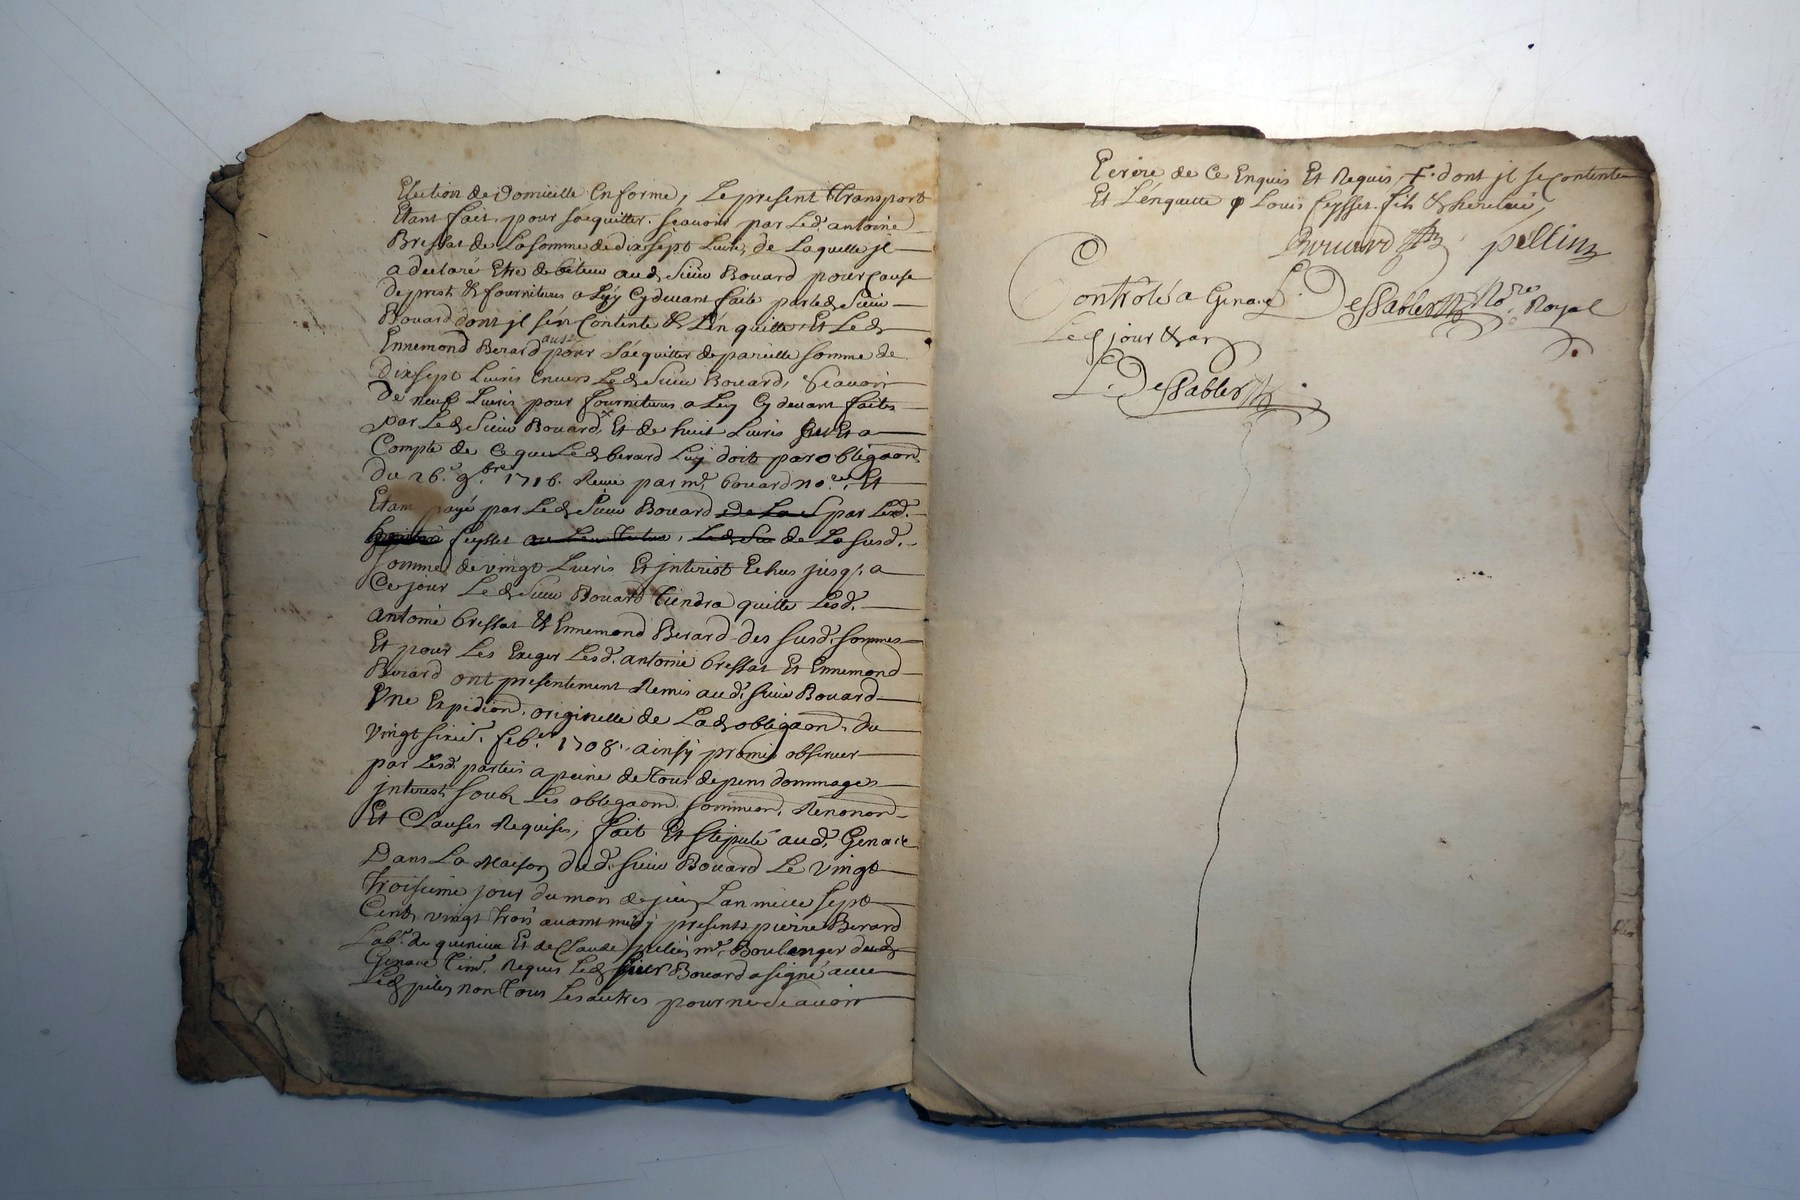 Election de Domicille En forme, Le present Transport
Etant fait pour s'acquitter scavoir par Led. antoine
Bressat de La somme de dix sept Livres, de Laquelle jl
a declaré Etre debiteur aud. Sieur Bouard pour Cause
de prest & fournitures a Luy Cy devant faite par led. Sieur
Bouard dont jl s'en Contente & L'en quitte, Et Led.
Ennemond Berard aussi pour s'acquitter de pareille somme de
Dix sept Livres Envers Led. Sieur Bouard, scavoir
De neuf Livres pour fournitures a Luy Cy devant faites
par Led. Sieur Bouard Et de huit Livres Et a
Compte de Ce que Led. berard Luy doit par obligaon
du 26.e 9.bre 1716. Reçue par m.e bouard no.re, Et
Etant payé par Led. Sieur Bouard par Led.
feysset de La susd.
somme de vingt Livres Et jnterest Echus jusq. a
Ce jour Led. Sieur Bouard tiendra quitte Lesd.
antoine bressat & Ennemond Berard des susd. sommes
Et pour Les Exeger Lesd. antoine bressat Et Ennemond
Berard ont presentement Remis aud. sieur Bouard
Une Expedion. originelle de Lad. obligaon. du
vingt sixie. feb.er 1708. ainsy promis observer
par Lesd. parties a peine de tous depens dommages
jnterest soub Les obligaons. sommions. Renonons.
Et Clauses Requises, fait Et stipulé aud. Genace
Dans La Maison dud. sieur Bouard Le vingt
troisieme jour du mois de juin L'an mille sept
Cents vingt trois avant midy presents pierre Berard
Lab.r de quinieux Et de Claude m.e Boulanger dud.
Genace Requis Led. sieur Bouard a signé avec
Led. non tous Les autres pour ne scavoir
Ecrire de Ce Enquis Et Requis, dont jl se contente
Et L'enquitte Louis feysset fils & heritie,
Bouard pellin
Controlé a Genace L. DesSables No.re Royal
Led. jour & an
L. DesSables